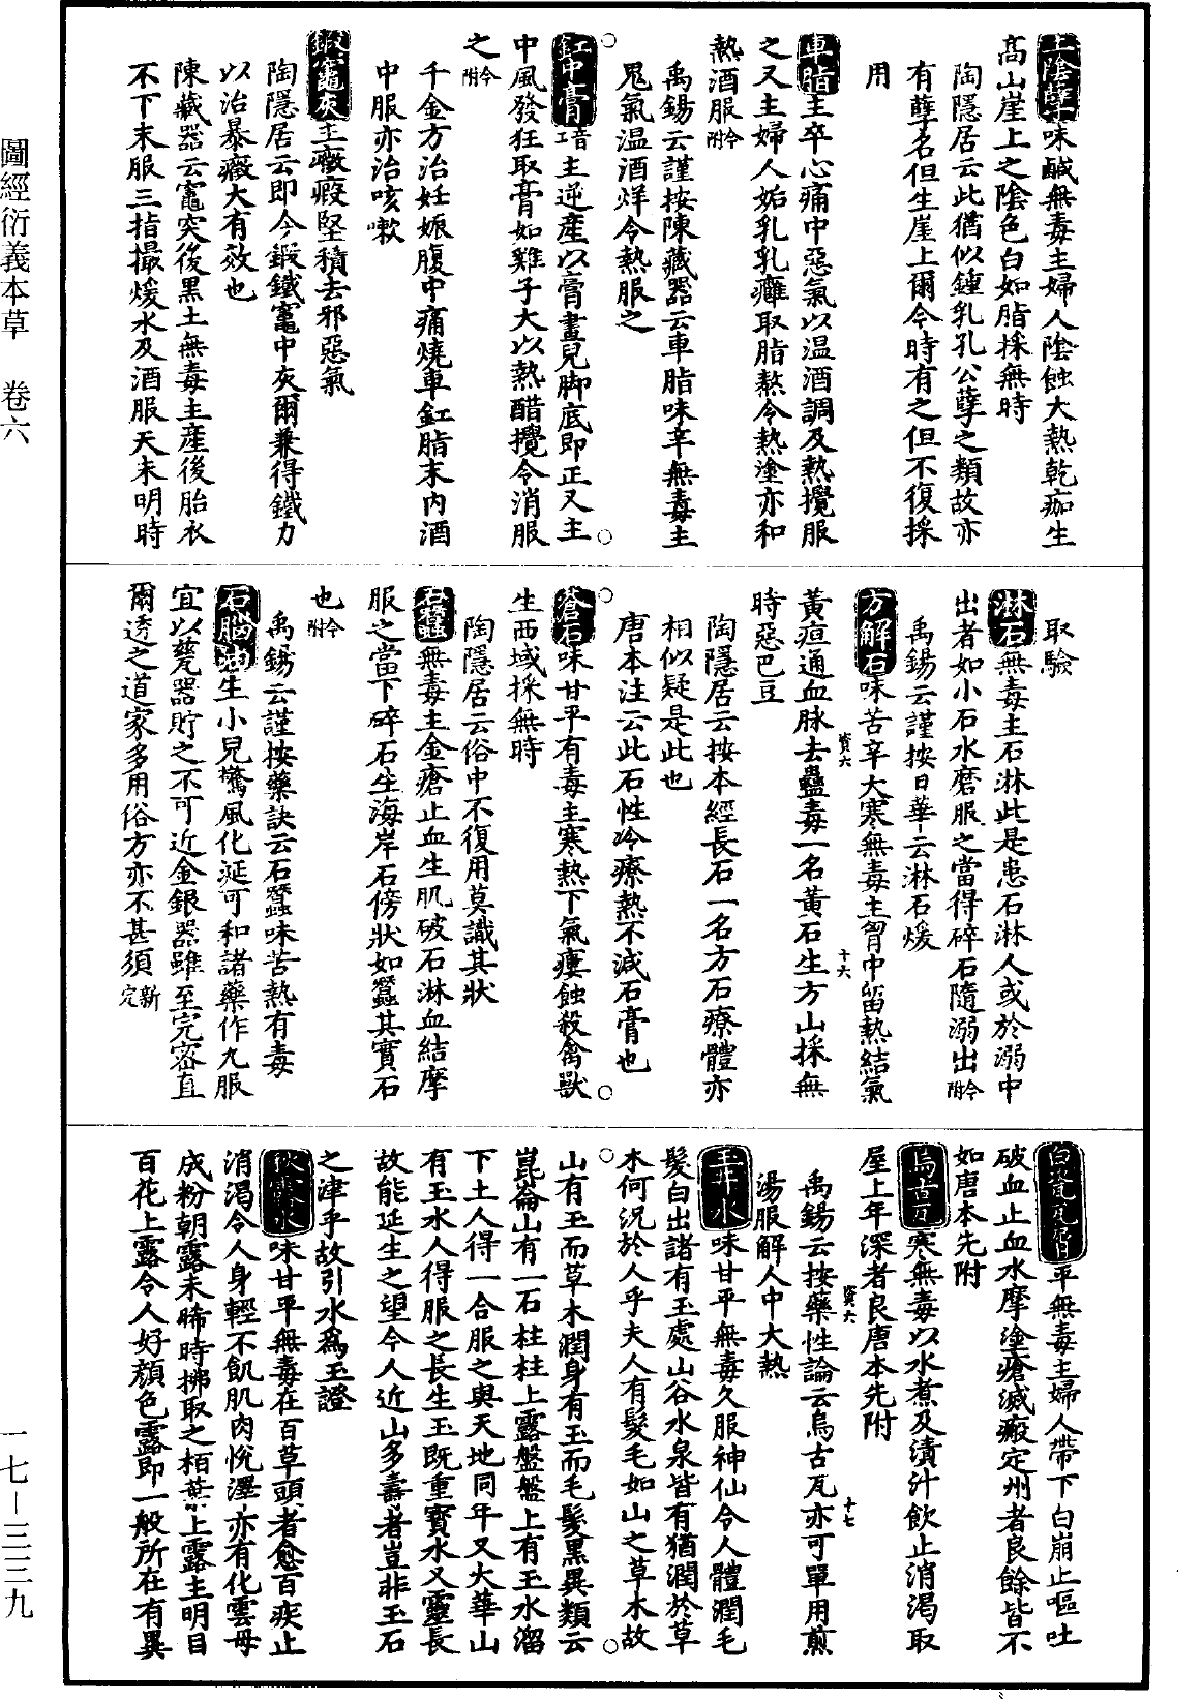 土陰孽味鹹無毒主婦人陰蝕大熱乾痂生
高山崖上之陰色白如脂採無時
陶隱居云此猶似鍾乳孔公孽之類故亦
有孽名但生崖上爾今時有之但不復採
用
車脂主卒心痛中惡氣以温酒調及熱攪服
之又主婦人妬乳乳癰取脂熬令熱塗亦和
熱酒服今附
禹錫云謹按陳藏器云車脂味辛無毒主
鬼氣温酒烊令熱服之
釭中膏音工主逆産以膏畫兒脚底即正又主
中風發狂取膏如雞子大以熱醋攪令消服
之今附
千金方治妊娠腹中痛燒車釭脂末内酒
中服亦治咳嗽
煅竈灰主癥瘕堅積去邪惡氣
陶隱居云即今鍛鐵竈中灰爾兼得鐵力
以治暴癥大有效也
陳藏器云竈突後黒土無毒主産後胎衣
不下末服三指撮煖水及酒服天未明時
取驗
淋石無毒主石淋此是患石淋人或於溺中
出者如小石水磨服之當得碎石隨溺出今附
禹錫云謹按日華云淋石煖
方解石味苦辛大寒無毒主胷中留熱結氣
黃疸通血脉去蠱毒一名黃石生方山採無
時惡巴豆
陶隱居云按本經長石一名方石療體亦
相似疑是此也
唐本注云此石性冷療熱不減石膏也
蒼石味甘平有毒主寒熱下氣瘻蝕殺禽獸
生西域採無時
陶隱居云俗中不復用莫識其狀
石蠶無毒主金瘡止血生肌破石淋血結摩
服之當下碎石生海岸石傍狀如蠶其實石
也今附
禹錫云謹按藥訣云石蠶味苦熱有毒
石腦油主小兒驚風化涎可和諸藥作丸服
宜以甆器貯之不可近金銀器雖至完密直
爾透之道家多用俗方亦不甚須新定
白甆瓦屑平無毒主婦人帶下白崩止嘔吐
破血止血水摩塗瘡滅瘢定州者良餘皆不
如唐本先附
烏古瓦寒無毒以水煮及漬汁飲止消渴取
屋上年深者良唐本先附
禹錫云按藥性論云烏古瓦亦可單用煎
湯服解人中大熱
玉井水味甘平無毒久服神仙令人體潤毛
髮白出諸有玉處山谷水泉皆有猶潤於草
木何況於人乎夫人有髮毛如山之草木故
山有玉而草木潤身有玉而毛髮黒異類云
崑崙山有一石柱柱上露盤盤上有玉水溜
下土人得一合服之與天地同年又大華山
有玉水人得服之長生玉既重寶水又靈長
故能延生之望今人近山多壽者豈非玉石
之津乎故引水爲玉證
秋露水味甘平無毒在百草頭者愈百疾止
消渴令人身輕不飢肌肉悅澤亦有化雲母
成粉朝露未晞時拂取之栢葉上露主明目
百花上露令人好顔色露即一般所在有異
圖經衍義本草　卷六
一七—三三九